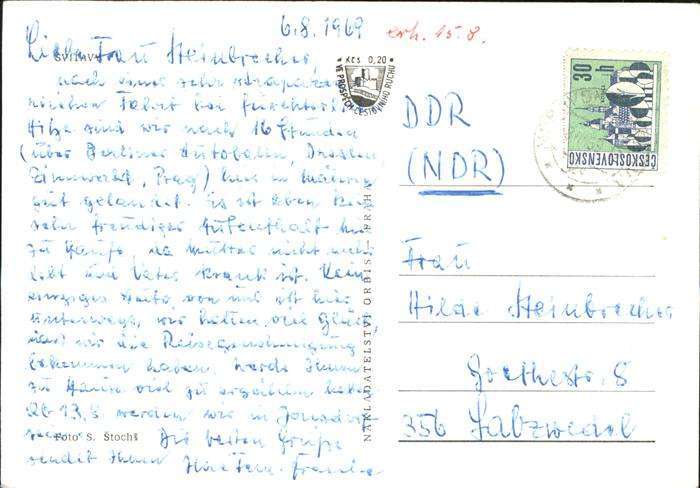 6.8.1969
erh. 15.8.
SVITAVY
Liebe Frau Steinbrecher,
nach einer sehr strapazen-
reichen Fahrt bei furchtbarer
Hitze sind wir nach 16 Stunden
(über Berliner Autobahn, Dresden,
Zinnwald, Prag) hier in Mähren
gut gelandet. Es ist aber kein
sehr freudiger Aufenthalt hier
zu Hause, da Mutter nicht mehr
lebt und Vater krank ist. Kein
einziges Auto von uns ist hier
unterwegs, wir hatten viel Glück,
wir die Reisegenehmigung
bekommen haben. Werde Ihnen
zu Hause viel zu erzählen haben.
Ab 13.8. werden wir in
sein. Die besten Grüße
sendet Ihnen Ihre
Foto S. Štochš
NAKLADATELSTVÍ ORBIS, PRAHA
KčS 0,20
VE PROSPĚCH CESTOVNÍHO RUCHU
30 h
ČESKOSLOVENSKO
DDR
(NDR)
Frau
Hilde Steinbrecher
Goethestr. 8
356 Salzwedel